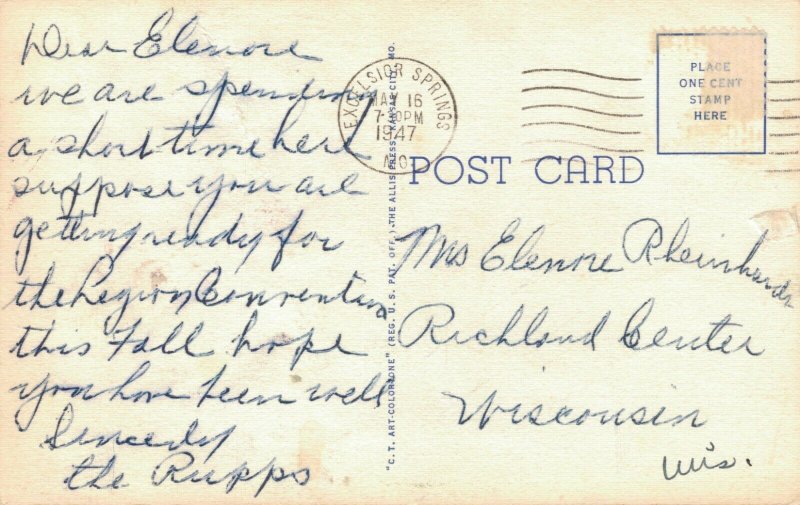 Dear Elenore
we are spending
a short time here
suppose you are
getting ready for
the Legion Convention
this Fall hope
you have been well
Sincerely
the Rupps
"C.T. ART-COLORTONE" (REG. U. S. PAT. OFF.), THE ALLIS PRESS, KANSAS CITY, MO.
EXCELSIOR SPRINGS
MAY 16
PM
1947
MO.
PLACE
ONE CENT
STAMP
HERE
POST CARD
Mrs Elenore Rheinhardt
Richland Center
Wisconsin
Wis.